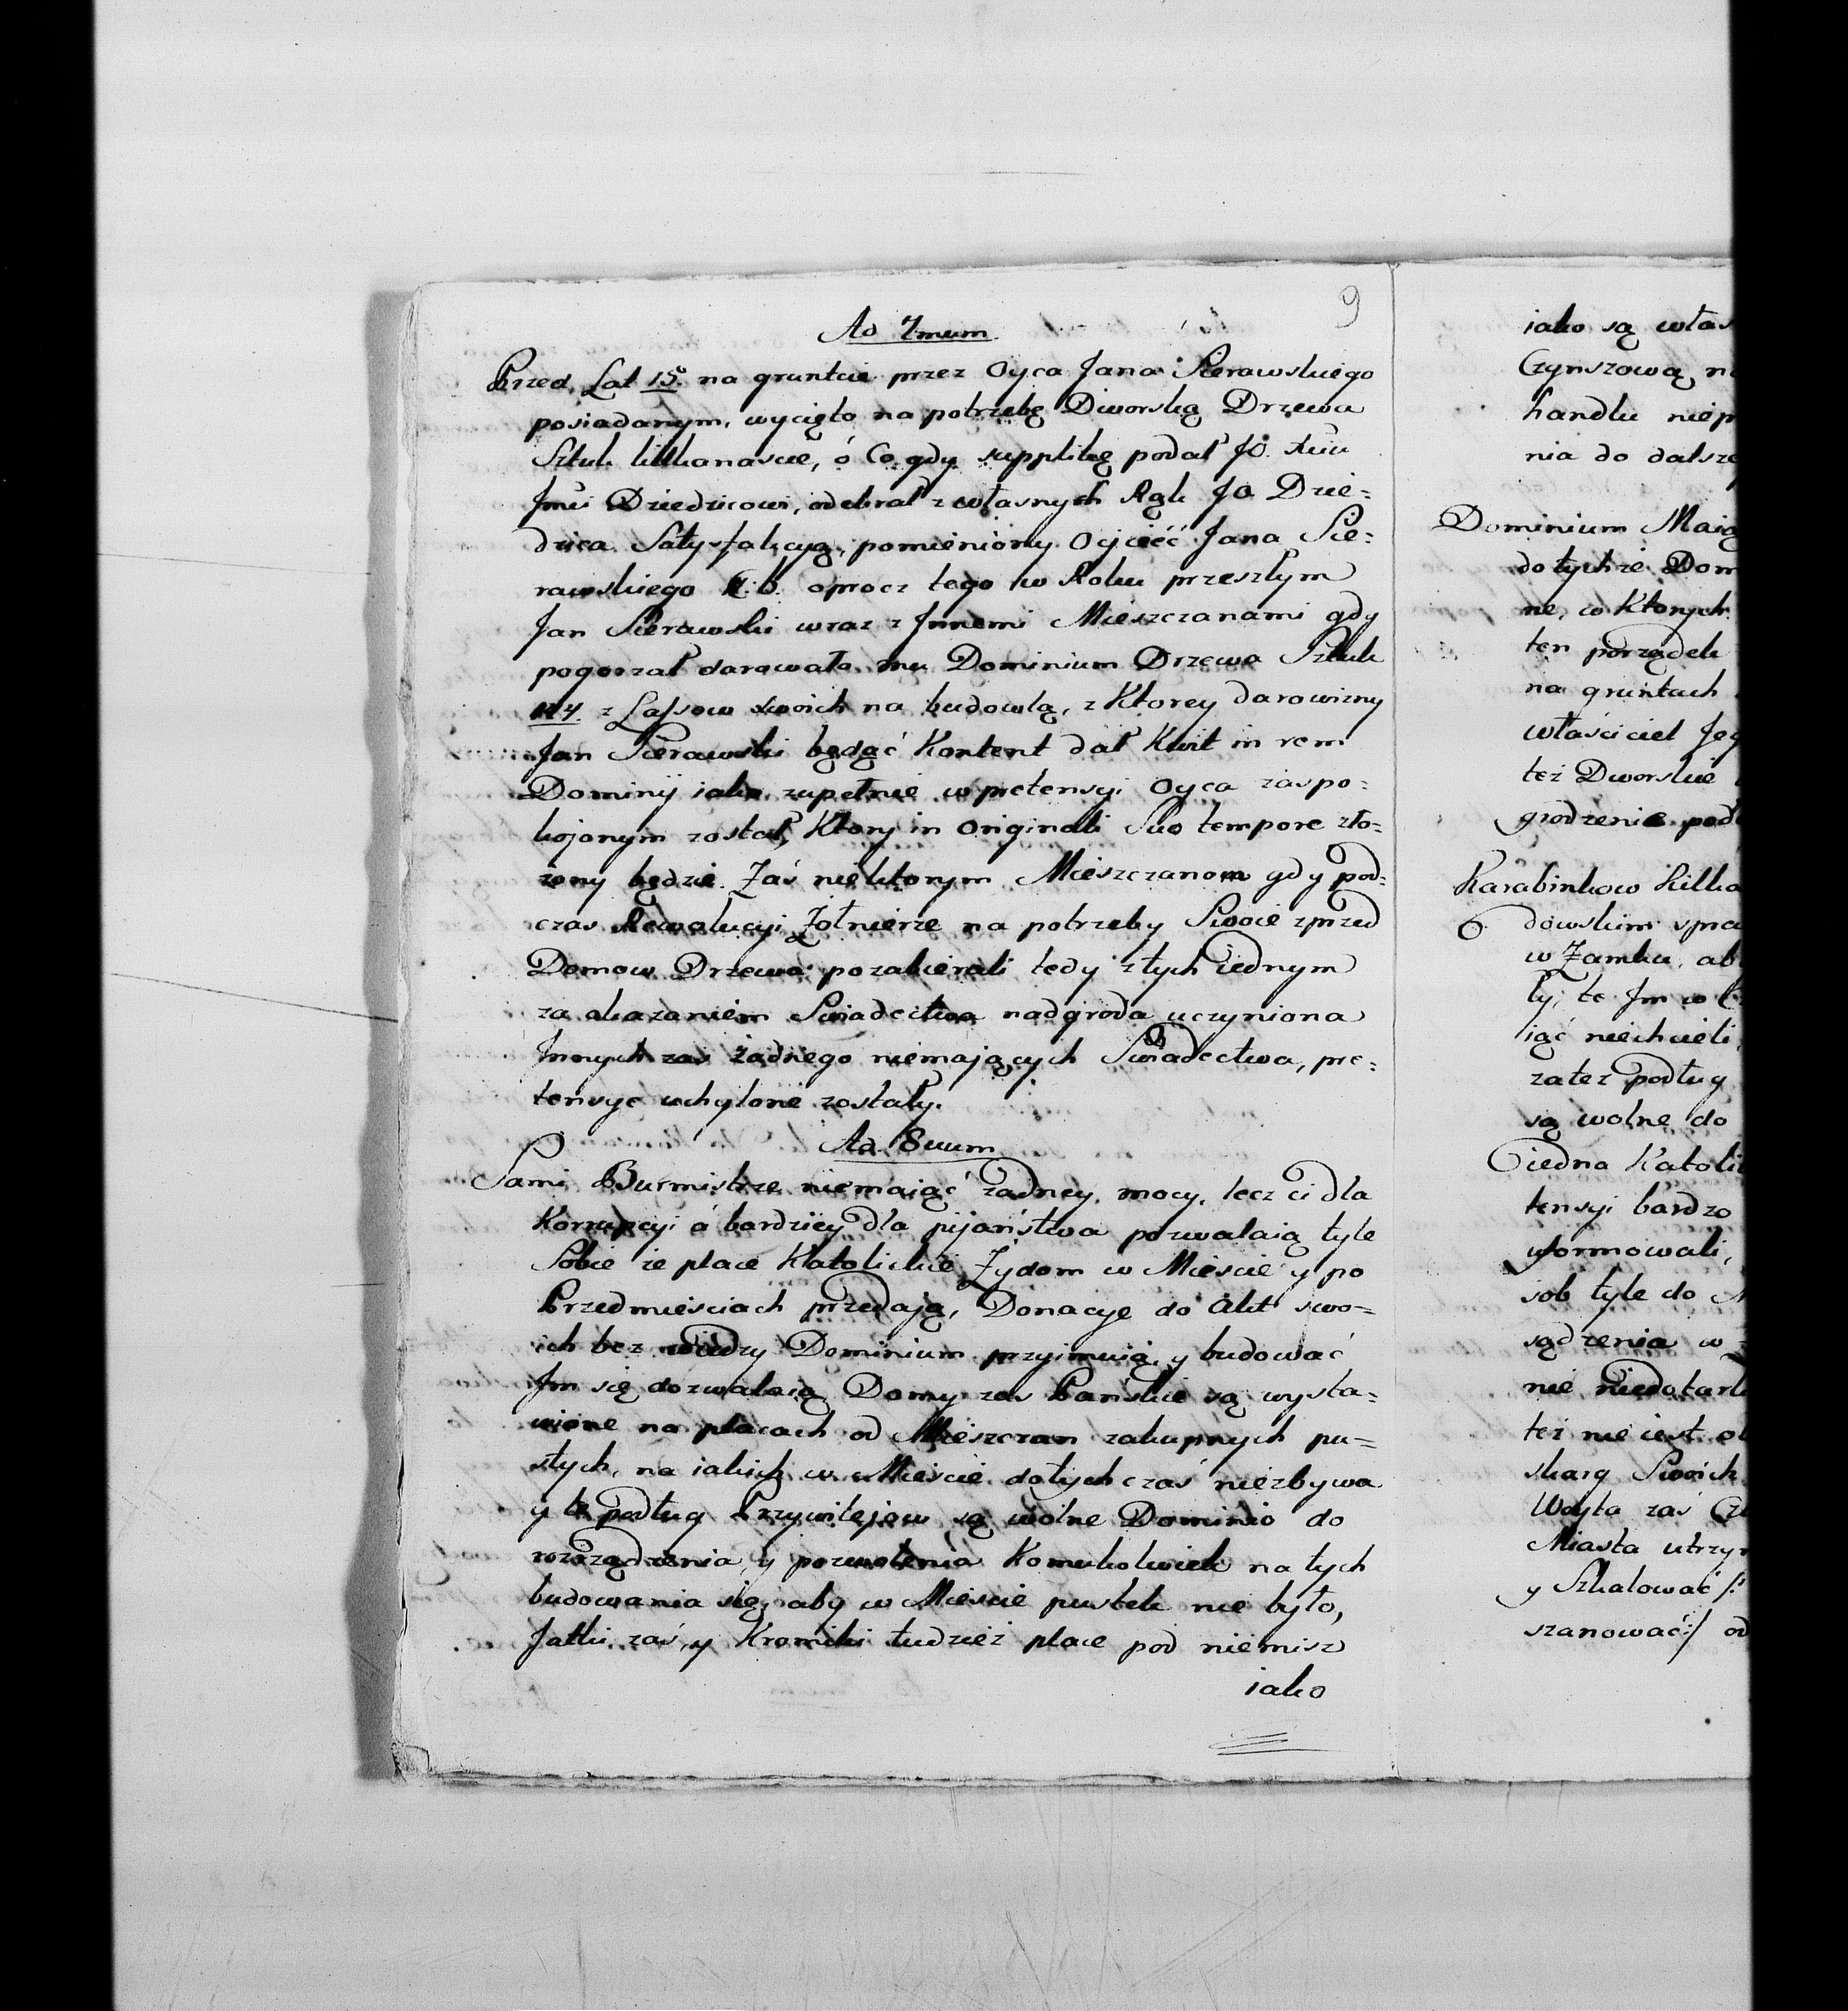 9
Ad 7mum
Przed Lat 15. na gruntcie przez Oyca Jana Sierawskiego
posiadanym, wycięto na potrzebę Dworską Drzewa
Sztuk kilkanascie, ó Co gdy supplikę podał JO. Xciu
Jmci Dziedzicowi, odebrał z własnych Rąk JO. Dzie=
dzica Satysfakcyą, pomieniony Oyciéć Jana Sie=
rawskiego oprocz tego w Roku przeszłym
Jan Sierawski wraz z Jnnemi Mieszczanami gdy
pogorzał darowała mu Dominium Drzewa Sztuk
z Lassow swoich na budowlą, z Ktorey darowizny
Jan Sierawski będąć Kontent dał Kwit in rem
Dominij iako zupełnie w pretensyi Oyca zaspo=
kojonym został, Ktory in Originali Suo tempore zło=
żony będzie. Zaś niektorym Mieszczanom gdy pod=
czas Rewolucyi Żołnierze na potrzeby Swoie zprzed
Domow Drzewa pozabierali tedy z tych iednym
za okazaniem Swiadectwa nadgroda uczyniona
Jnnych zas żadnego niemających Swiadectwa, pre=
tensye uchylone zostały.
Ad 8vum
Sami Burmistrze niemaiąć żadney mocy, lecz ci dla
Korrupcyi á bardziey dla pijaństwa pozwalaią tyle
Sobie że place Katolickie Żydom w Miescie y po
Przedmieściach przedają, Donacye do Akt swo=
ich bez wiedzy Dominium przyimuią, y budować
Jm się dozwalaią Domy zas Pańskie są wysta=
wione na placach od Mieszczan zakupnych pu=
stych, na iakich w Mieście dotychczaś niezbywa
y te podług Przywilejow są wolne Dominio do
rozrządzenia, y pozwolenia Komukolwiek na tych
budowania się, aby w Miescie pustek nie było,
Jatki zaś, y Kromiki tudzież place pod niemisz
iako
iako są włas
Czynszową n
handlu niep
nia do dalsze
Dominium Maią
dotychże Dom
ne, w Ktorych
ten porządek
na gruntach
właściciel Jeg
też Dworskie
grodzenie pod
Karabinkow Kilka
dowskim spra
w Zamku, ab
ły, te Jm w
iąć niechcieli,
zatez podług
są wolne do
iedna Katoli
tensyi bardzo
uformowali,
sob tyle do
sądzenia w
nie niedotark
też nie iest
skarg Swoich
Woyta zaś
Miasta utrzy
y Szkalować /:
szanować:/ od